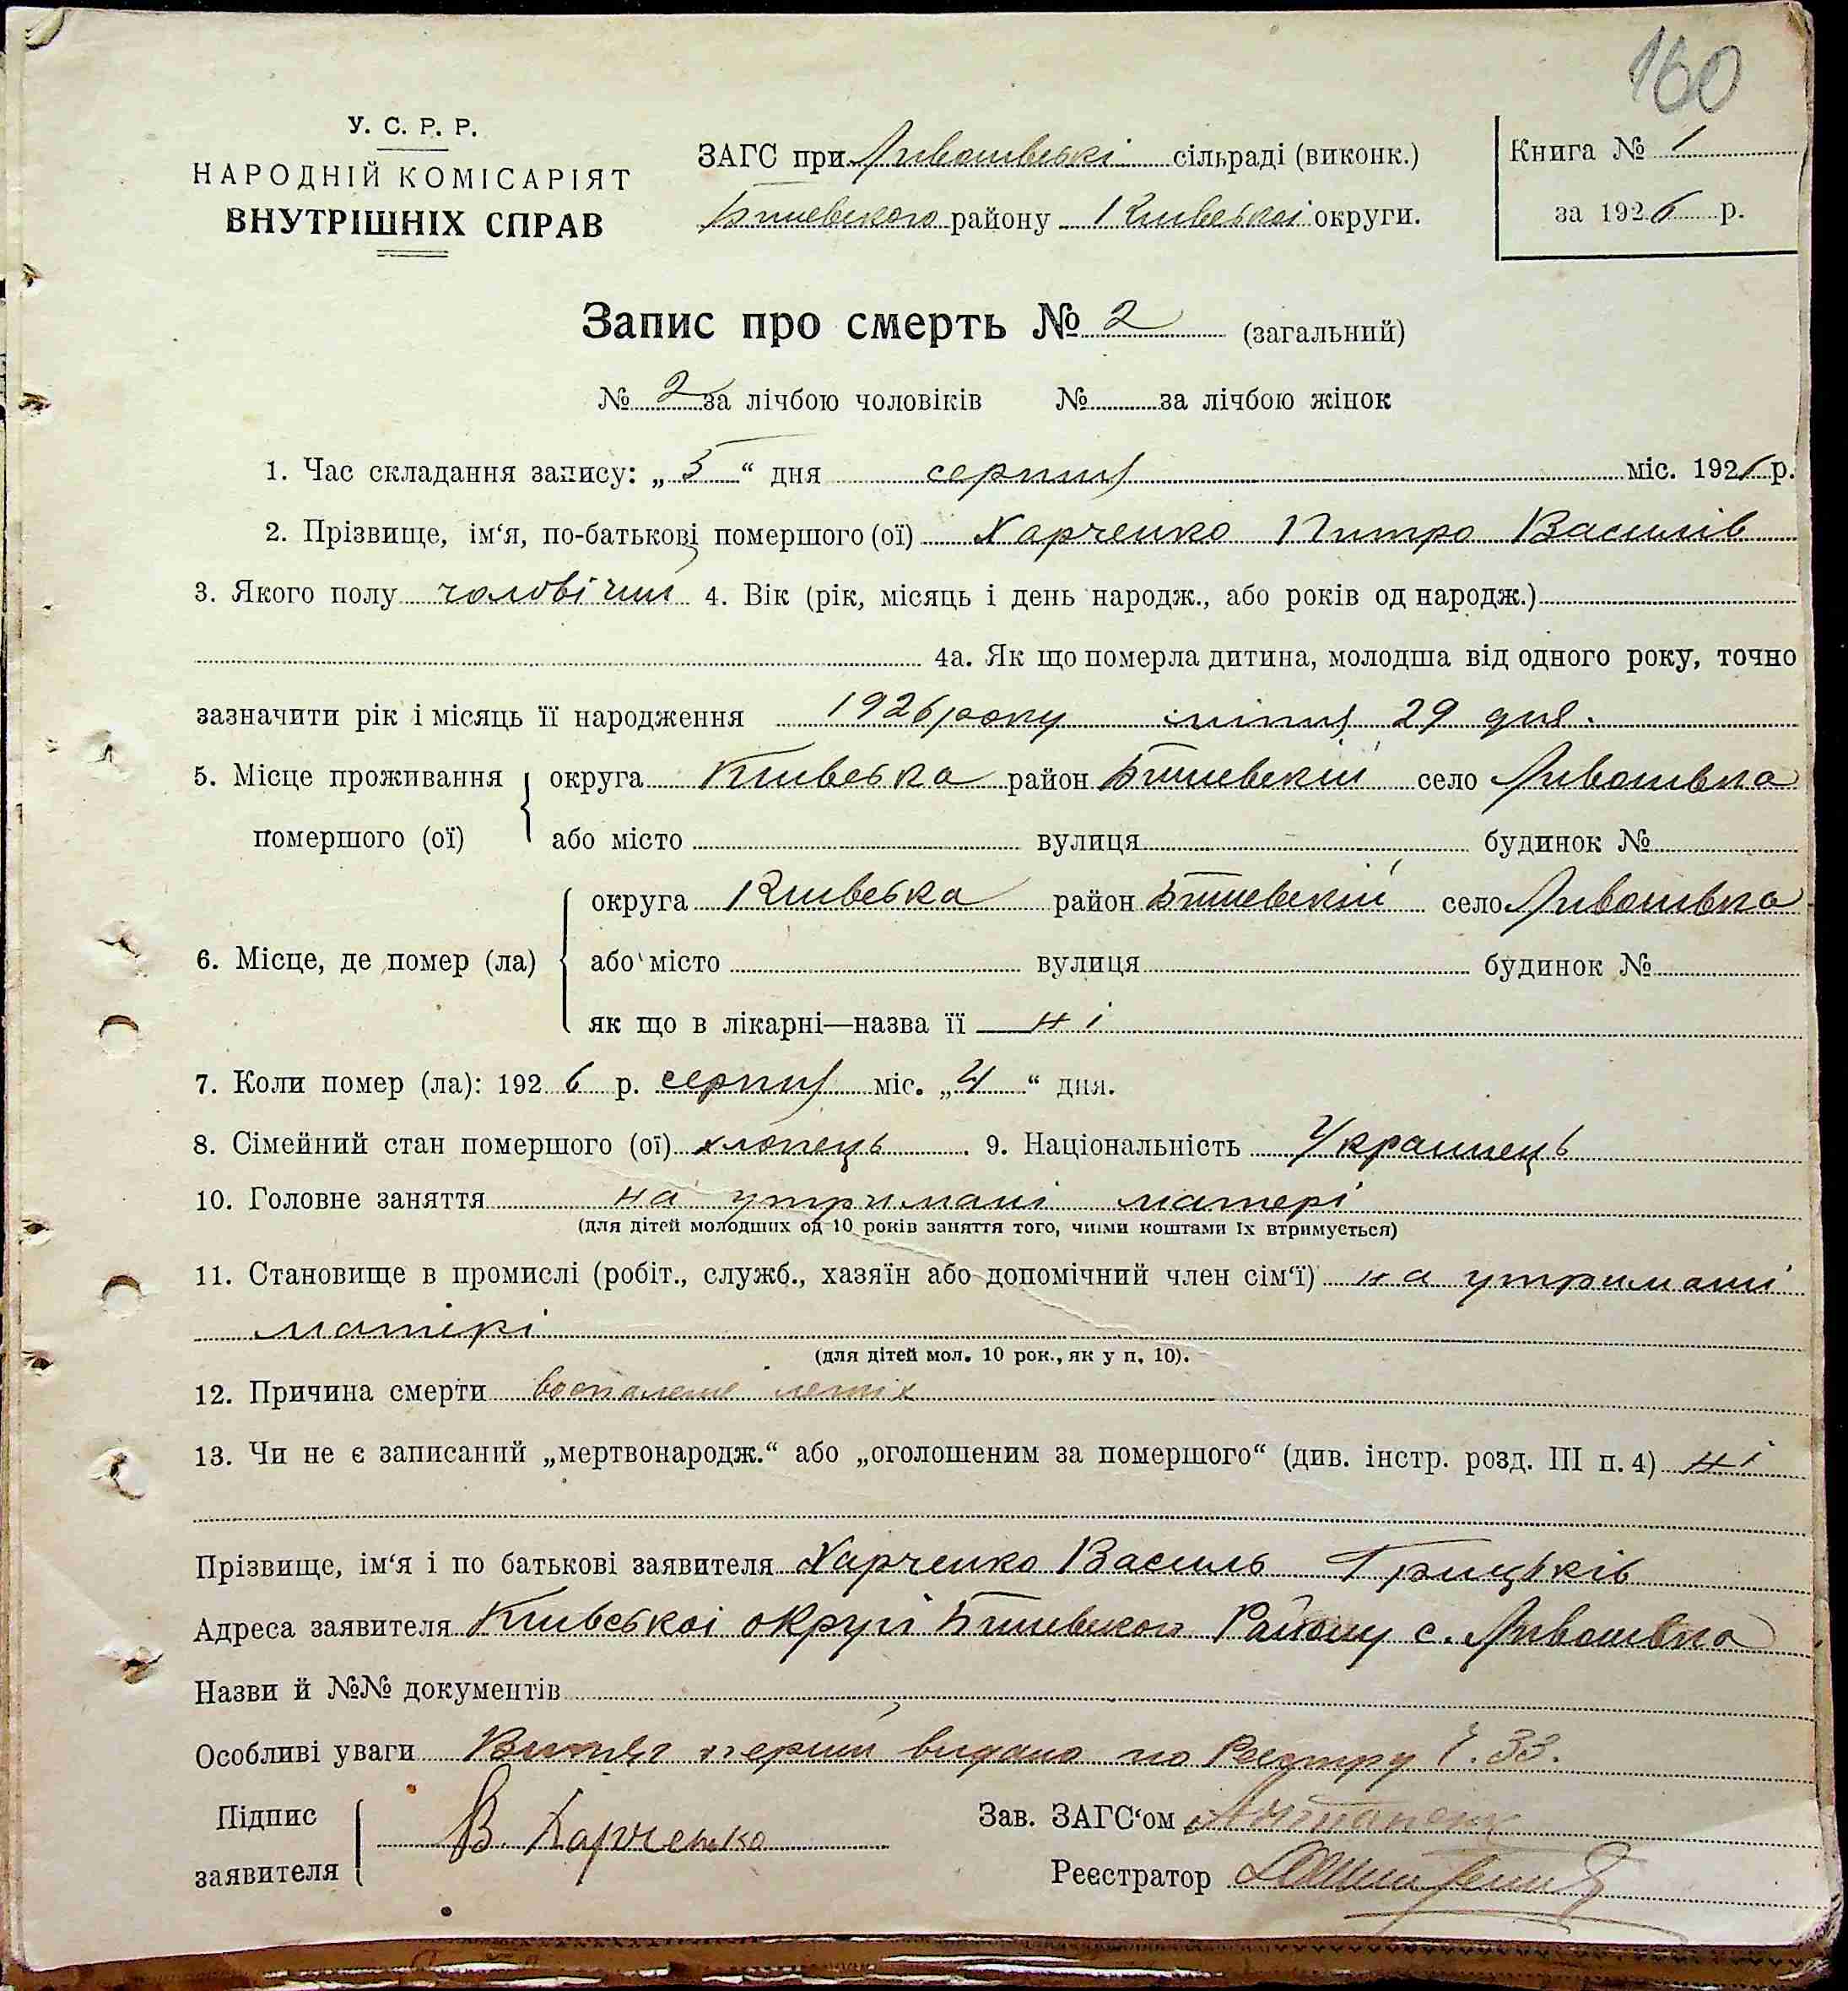 160
У. С. Р. Р.
НАРОДНІЙ КОМІСАРІЯТ
ВНУТРІШНІХ СПРАВ
ЗАГС при Лквошівські сільраді (виконк.)
Бишевского району Київської округи.
Книга № 1
за 1926 р.
Запис про смерть № 2 (загальний)
№ 2 за лічбою чоловіків № за лічбою жінок
1. Час складання запису: „5“ дня серпня міс. 1926 р.
2. Прізвище, ім‘я, по-батькові помершого (ої) Харченко Питро Василів
3. Якого полу чоловічий 4. Вік (рік, місяць і день народж., або років од народж.)
4а. Як що померла дитина, молодша від одного року, точно
зазначити рік і місяць її народження 1926 року липня 29 дня.
5. Місце проживання помершого (ої) округа Київська район Бишевский село
або місто вулиця будинок №
6. Місце, де помер (ла) округа Київська район Бишевский село
або місто вулиця будинок №
як що в лікарні—назва її ні
7. Коли помер (ла): 1926 р. серпня міс. „4“ дня.
8. Сімейний стан помершого (ої) хлопець. 9. Національність Українець
10. Головне заняття на утримані матері
(для дітей молодших од 10 років заняття того, чиїми коштами їх втримується)
11. Становище в промислі (робіт., служб., хазяїн або допомічний член сім‘ї) на утримані
матері
(для дітей мол. 10 рок., як у п. 10).
12. Причина смерти воспаление легких
13. Чи не є записаний „мертвонародж.“ або „оголошеним за помершого“ (див. інстр. розд. III п. 4) ні
Прізвище, ім‘я і по батькові заявителя Харченко Василь Грицьків
Адреса заявителя Київської округи Бишевского Району с.
Назви й №№ документів
Особливі уваги Витяг перший видано по Реєстру Ч. 33.
Підпис заявителя В. Харченко
Зав. ЗАГС‘ом
Реєстратор